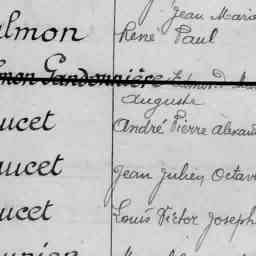 Jean Marie
almon René Paul
mon Gandonnière Edmond
Auguste
ucet André Pierre Alexand
ucet Jean Julien Octav
ucet Louis Victor Joseph